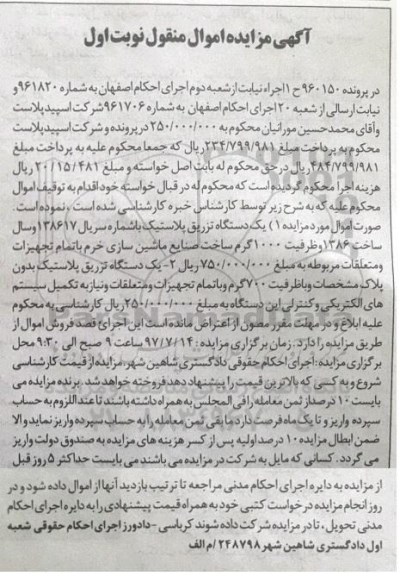 آگهی مزایده اموال منقول نوبت اول
در پرونده ۹۶۰۱۵۰ ح ۱ اجرا، نیابت از شعبه دوم اجرای احکام اصفهان به شماره ۹۶۱۸۲۰ و
نیابت ارسالی از شعبه ۲۰ اجرای احکام اصفهان به شماره ۹۶۱۷۰۶ شرکت اسپید پلاست
و آقای محمدحسین مورانیان محکوم به ۲۵۰/۰۰۰/۰۰۰ در پرونده و شرکت اسپید پلاست
محکوم به پرداخت مبلغ ۲۳۴/۷۹۹/۹۸۱ ریال که جمعا محکوم علیه به پرداخت مبلغ
۴۸۴/۷۹۹/۹۸۱ ریال در حق محکوم له بابت اصل خواسته و مبلغ ۲۰/۱۵/۴۸۱ ریال
هزینه اجرا محکوم گردیده است که محکوم له در قبال خواسته خود اقدام به توقیف اموال
محکوم علیه که به شرح زیر توسط کارشناس خبره کارشناسی شده است، نموده است.
صورت اموال مورد مزایده ۱) یک دستگاه تزریق پلاستیک باشماره سریال ۱۳۸۶۱۷ وسال
ساخت ۱۳۸۶ وظرفیت ۱۰۰۰ گرم ساخت صنایع ماشین سازی خرم باتمام تجهیزات
ومتعلقات مربوطه به مبلغ ۷۵۰/۰۰۰/۰۰۰ ریال ۲- یک دستگاه تزریق پلاستیک بدون
پلاک مشخصات وباظرفیت ۷۰۰ گرم وباتمام تجهیزات ومتعلقات ونیاز به تکمیل سیستم
های الکتریکی وکنترلی این دستگاه به مبلغ ۲۵۰/۰۰۰/۰۰۰ ریال کارشناسی به محکوم
علیه ابلاغ و در مهلت مقرر مصون از اعتراض مانده است این اجرای قصد فروش اموال از
طریق مزایده را دارد. زمان برگزاری مزایده: ۹۷/۷/۱۴ ساعت ۹ صبح الی ۹:۳۰ محل
برگزاری مزایده: اجرای احکام حقوقی دادگستری شاهین شهر، مزایده از قیمت کارشناسی
شروع و به کسی که بالاترین قیمت را پیشنهاد دهد فروخته خواهد شد. برنده مزایده می
بایست ۱۰ درصد از ثمن معامله را فی المجلس به همراه داشته باشند تا عند اللزوم به حساب
سپرده واریز و تا یک ماه فرصت دارد مابقی ثمن معامله را به حساب سپرده واریز نماید والا
ضمن ابطال مزایده ۱۰ درصد اولیه پس از کسر هزینه های مزایده به صندوق دولت واریز
می گردد. کسانی که مایل به شرکت در مزایده می باشند می بایست حداکثر ۵ روز قبل
از مزایده به دایره اجرای احکام مدنی مراجعه تا ترتیب بازدید آنها از اموال داده شود و در
روز انجام مزایده درخواست کتبی خود به همراه قیمت پیشنهادی را به دایره اجرای احکام
مدنی تحویل، تا در مزایده شرکت داده شوند کرباسی - دادورز اجرای احکام حقوقی شعبه
اول دادگستری شاهین شهر ۲۴۸۷۹۸/م الف